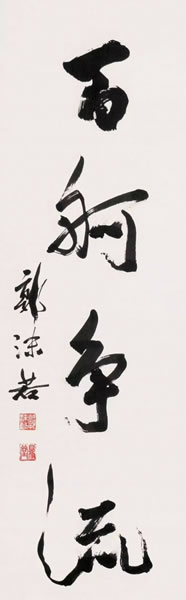 百舸争流
郭沫若